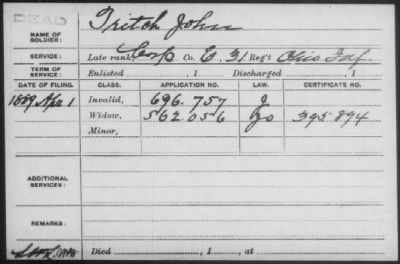 DEAD
NAME OF SOLDIER: Tritch John
SERVICE: Late rank, Corp Co. E, 31 Reg't Ohio Inf.
TERM OF SERVICE: Enlisted , 1 Discharged , 1
DATE OF FILING. CLASS. APPLICATION NO. LAW. CERTIFICATE NO.
1889, Apr. 1 Invalid, 696.757 J
Widow, 562.056 Jo 395.894
Minor,
ADDITIONAL SERVICES:
REMARKS:
Died , 1 , at